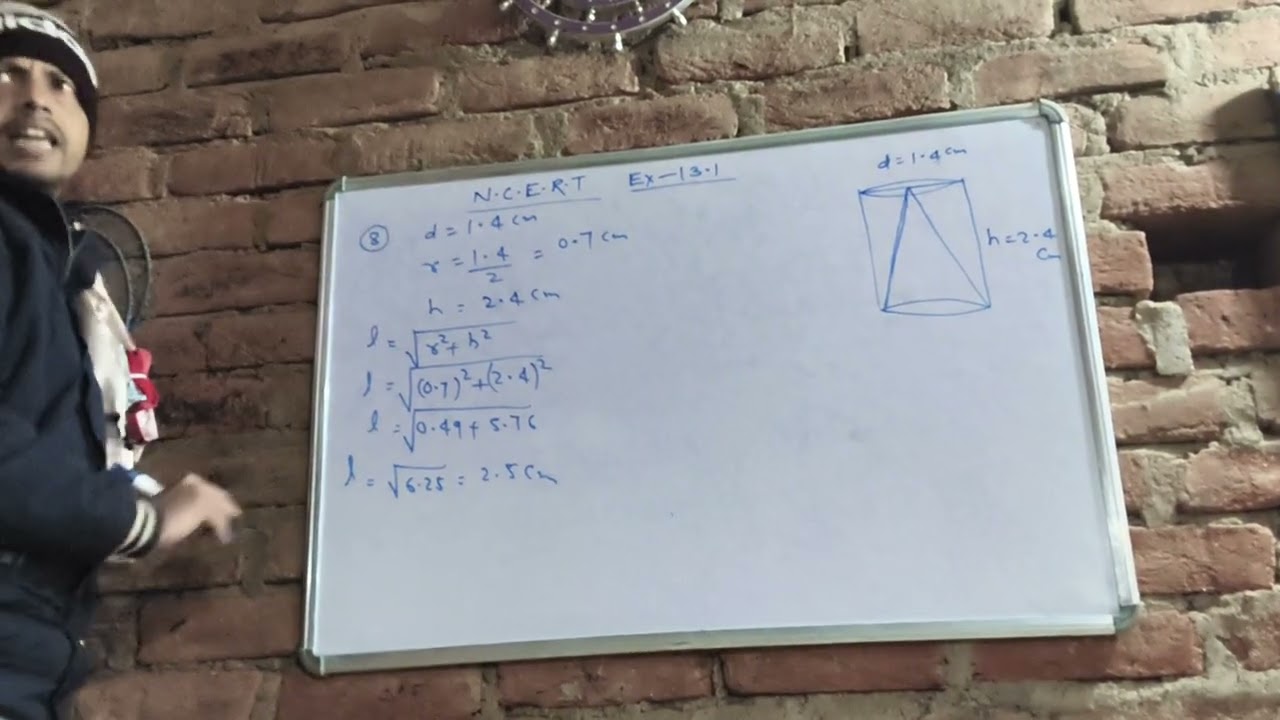 N.C.E.R.T Ex-13.1
8 d = 1.4 cm
r = 1.4/2 = 0.7 cm
h = 2.4 cm
l = √r²+h²
l = √(0.7)²+(2.4)²
l = √0.49+5.76
l = √6.25 = 2.5 cm
d = 1.4 cm
h = 2.4
cm